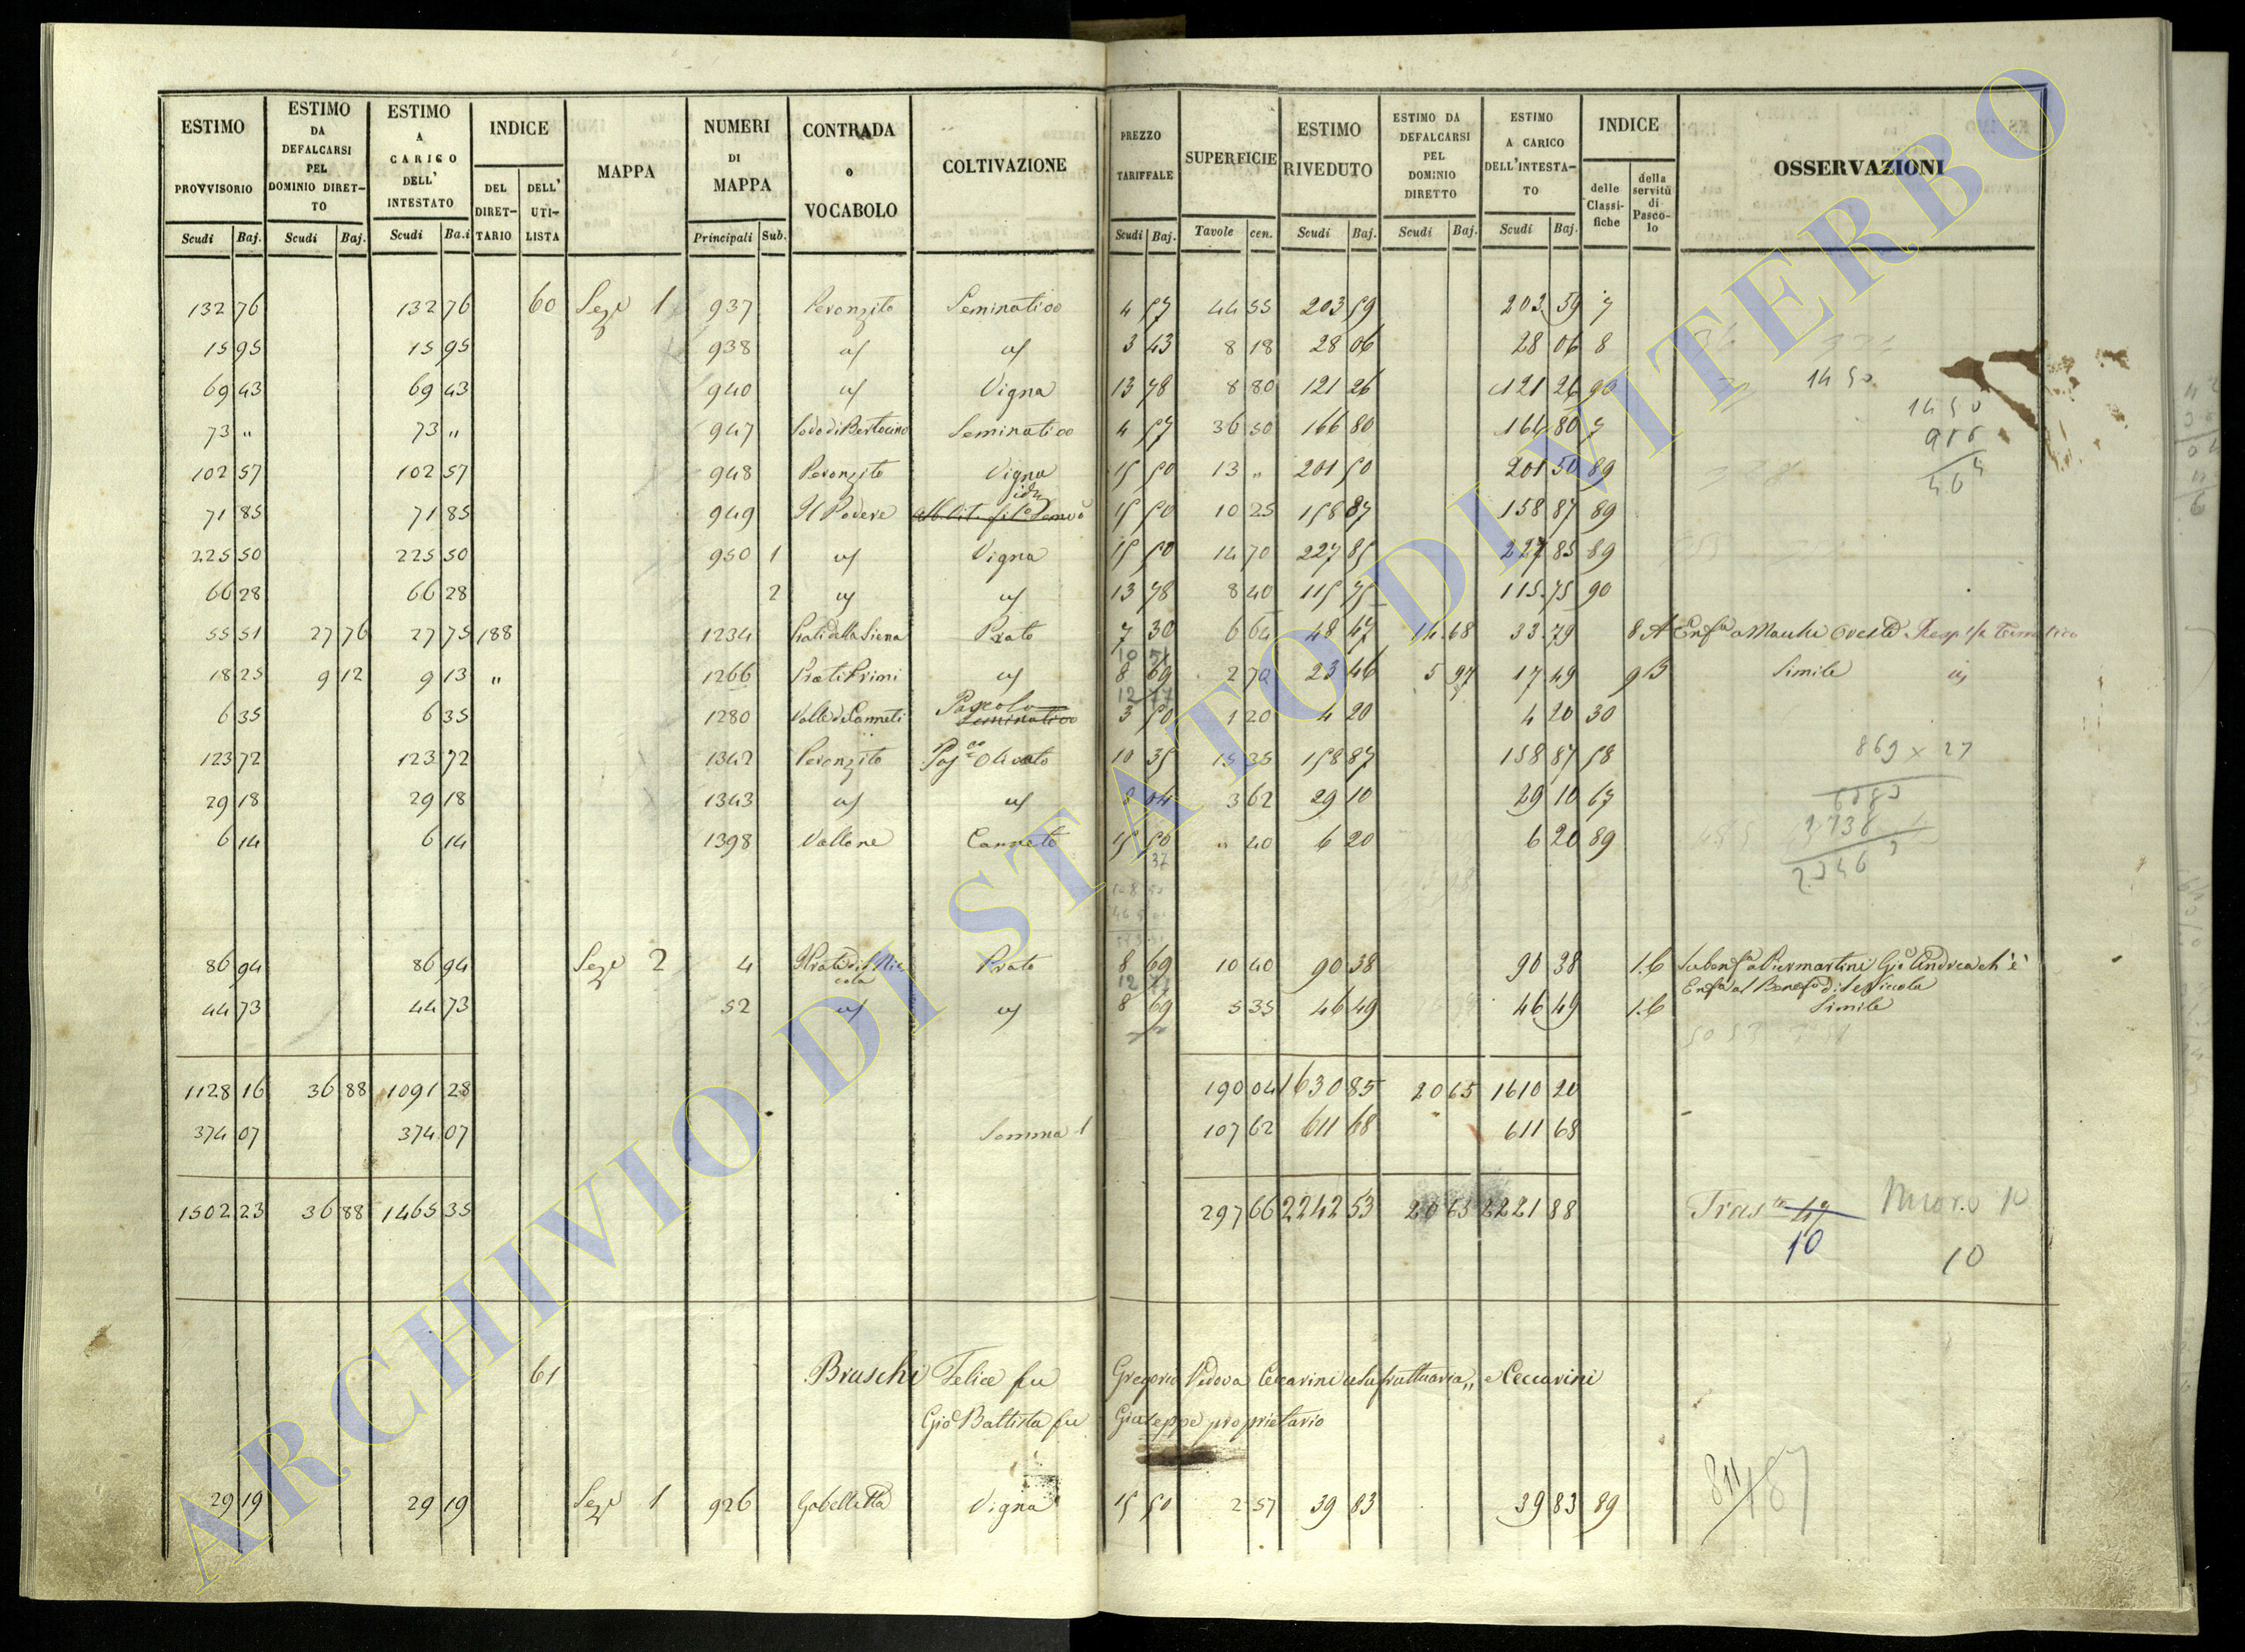 ESTIMO PROVVISORIO | ESTIMO DA DEFALCARSI PEL DOMINIO DIRETTO | ESTIMO A CARICO DELL' INTESTATO | INDICE | MAPPA | NUMERI DI MAPPA | CONTRADA o VOCABOLO | COLTIVAZIONE | PREZZO TARIFFALE | SUPERFICIE | ESTIMO RIVEDUTO | ESTIMO DA DEFALCARSI PEL DOMINIO DIRETTO | ESTIMO A CARICO DELL'INTESTATO | INDICE | OSSERVAZIONI
DEL DIRETTARIO | DELL' UTILISTA | delle Classifiche | della servitù di Pascolo
Scudi | Baj. | Scudi | Baj. | Scudi | Ba.i | Principali | Sub. | Scudi | Baj. | Tavole | cen. | Scudi | Baj. | Scudi | Baj. | Scudi | Baj.
132 76 132 76 60 Sez.e 1 937 Peronzito Seminativo 4 57 44 55 203 59 203 59 7
15 95 15 95 938 3 43 8 18 28 06 28 06 8
69 43 69 43 940 Vigna 13 78 8 80 121 26 121 26 90 14 50
73 " 73 " 947 Seminativo 4 57 36 50 166 80 166 80 7 14 50
102 57 102 57 948 Peronzito Vigna 15 50 13 " 201 50 201 50 89
71 85 71 85 949 Il Podere 15 50 10 25 158 87 158 87 89
225 50 225 50 950 1 Vigna 15 50 14 70 227 85 227 85 89
66 28 66 28 2 13 78 8 40 115 75 115 75 90
55 51 27 76 27 75 188 1234 Prati della Siena Prato 7 30 6 64 48 47 14 68 33 79 8 A
18 25 9 12 9 13 " 1266 Prati Primi 8 69 2 70 23 46 5 97 17 49 9 B Simile
6 35 6 35 1280 Valle de Canneti Pascolo Seminativo 3 50 1 20 4 20 4 20 30
123 72 123 72 1342 Peronzito Olivato 10 35 15 35 158 87 158 87 58 869 x 27
29 18 29 18 1343 3 62 29 10 29 10 67 6083
6 14 6 14 1398 Vallone Canneto 15 50 " 40 6 20 6 20 89 1738
86 94 86 94 Sez.e 2 4 Prato 8 69 10 40 90 38 90 38 1.6 Piermartini Gio Andrea ch'è
44 73 44 73 52 8 69 5 35 46 49 46 49 1.6 Simile
1128 16 36 88 1091 28 190 04 1630 85 20 65 1610 20
374 07 374 07 Somma 107 62 611 68 611 68
1502 23 36 88 1465 35 297 66 2242 53 20 65 2221 88 Tras.to 47
10
10
61 Bruschi Felice fu Gregorio Vedova Ceccarini usufruttuaria,, e Ceccarini
Gio Battista fu Giuseppe proprietario
29 19 29 19 Sez.e 1 926 Gabelletta Vigna 15 50 2 57 39 83 39 83 89
811/87
ARCHIVIO DI STATO DI VITERBO